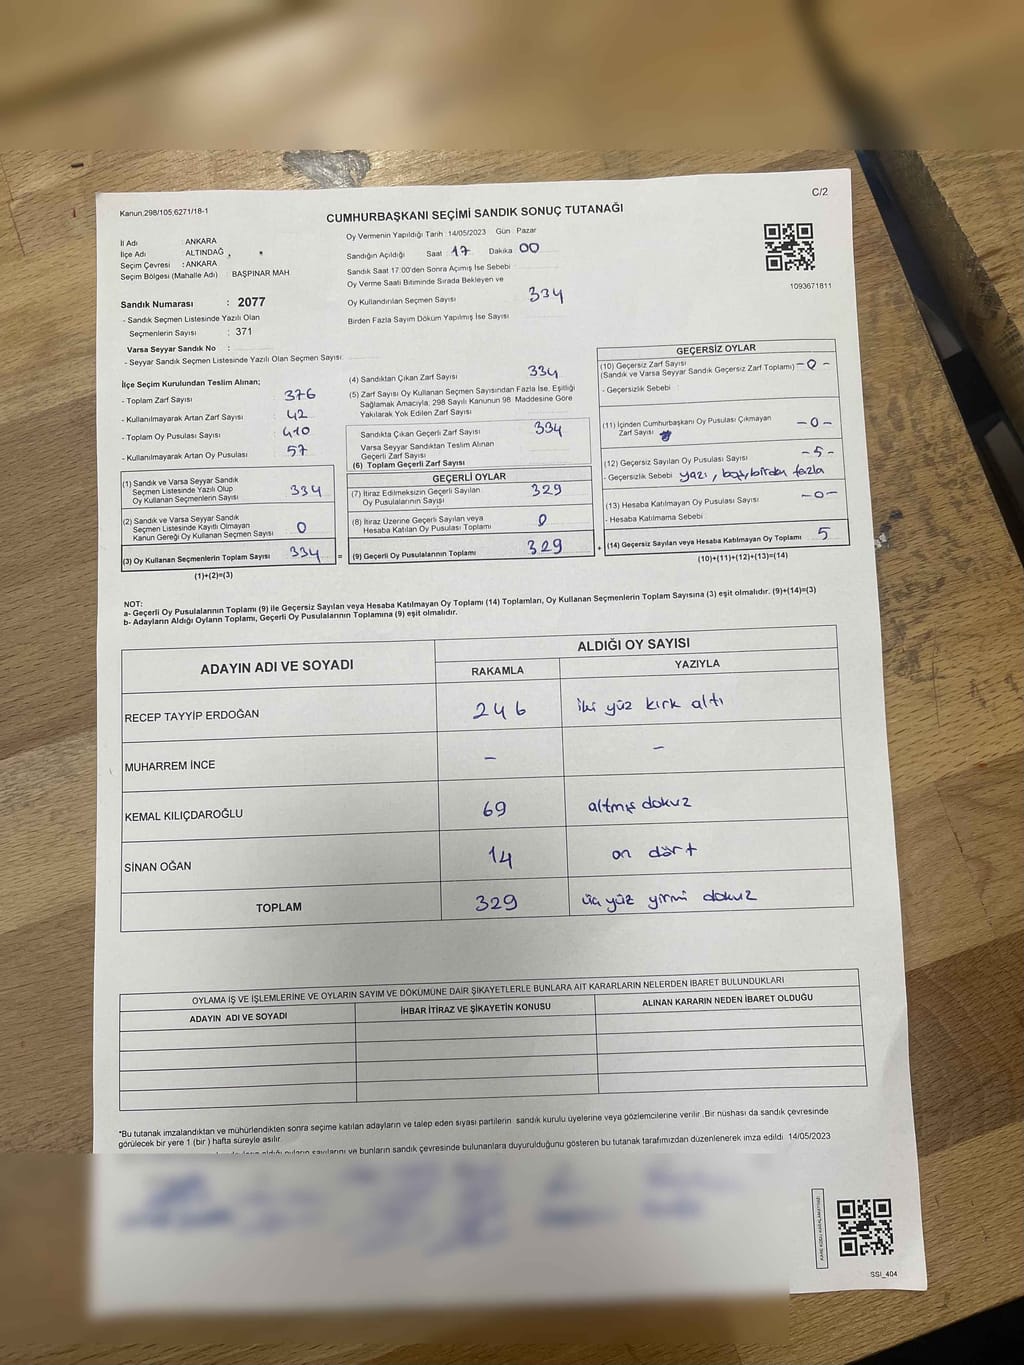 Kanun.298/105,6271/18-1
C/2
CUMHURBAŞKANI SEÇİMİ SANDIK SONUÇ TUTANAĞI
İl Adı : ANKARA
İlçe Adı : ALTINDAĞ
Seçim Çevresi : ANKARA
Seçim Bölgesi (Mahalle Adı) : BAŞPINAR MAH
Sandık Numarası : 2077
- Sandık Seçmen Listesinde Yazılı Olan
Seçmenlerin Sayısı : 371
Varsa Seyyar Sandık No :
- Seyyar Sandık Seçmen Listesinde Yazılı Olan Seçmen Sayısı:
Oy Vermenin Yapıldığı Tarih :14/05/2023 Gün : Pazar
Sandığın Açıldığı Saat 17 Dakika 00
Sandık Saat 17.00'den Sonra Açımış İse Sebebi
Oy Verme Saati Bitiminde Sırada Bekleyen ve
Oy Kullandırılan Seçmen Sayısı 334
Birden Fazla Sayım Döküm Yapılmış İse Sayısı
1093671811
İlçe Seçim Kurulundan Teslim Alınan;
- Toplam Zarf Sayısı 376
- Kullanılmayarak Artan Zarf Sayısı 42
- Toplam Oy Pusulası Sayısı 410
- Kullanılmayarak Artan Oy Pusulası 57
(1) Sandık ve Varsa Seyyar Sandık
Seçmen Listesinde Yazılı Olup
Oy Kullanan Seçmenlerin Sayısı 334
(2) Sandık ve Varsa Seyyar Sandık
Seçmen Listesinde Kayıtlı Olmayan
Kanun Gereği Oy Kullanan Seçmen Sayısı 0
(3) Oy Kullanan Seçmenlerin Toplam Sayısı 334 =
(1)+(2)=(3)
(4) Sandıktan Çıkan Zarf Sayısı 334
(5) Zarf Sayısı Oy Kullanan Seçmen Sayısından Fazla İse, Eşitliği
Sağlamak Amacıyla, 298 Sayılı Kanunun 98. Maddesine Göre
Yakılarak Yok Edilen Zarf Sayısı
Sandıkta Çıkan Geçerli Zarf Sayısı 334
Varsa Seyyar Sandıktan Teslim Alınan
Geçerli Zarf Sayısı
(6) Toplam Geçerli Zarf Sayısı
GEÇERLİ OYLAR
(7) İtiraz Edilmeksizin Geçerli Sayılan
Oy Pusulalarının Sayısı 329
(8) İtiraz Üzerine Geçerli Sayılan veya
Hesaba Katılan Oy Pusulası Toplamı 0
(9) Geçerli Oy Pusulalarının Toplamı 329 +
GEÇERSİZ OYLAR
(10) Geçersiz Zarf Sayısı
(Sandık ve Varsa Seyyar Sandık Geçersiz Zarf Toplamı) -0-
- Geçersizlik Sebebi :
(11) İçinden Cumhurbaşkanı Oy Pusulası Çıkmayan
Zarf Sayısı -0-
(12) Geçersiz Sayılan Oy Pusulası Sayısı -5-
- Geçersizlik Sebebi yazı,
fazla
(13) Hesaba Katılmayan Oy Pusulası Sayısı -0-
- Hesaba Katılmama Sebebi
(14) Geçersiz Sayılan veya Hesaba Katılmayan Oy Toplamı 5
(10)+(11)+(12)+(13)=(14)
NOT:
a- Geçerli Oy Pusulalarının Toplamı (9) ile Geçersiz Sayılan veya Hesaba Katılmayan Oy Toplamı (14) Toplamları, Oy Kullanan Seçmenlerin Toplam Sayısına (3) eşit olmalıdır. (9)+(14)=(3)
b- Adayların Aldığı Oyların Toplamı, Geçerli Oy Pusulalarının Toplamına (9) eşit olmalıdır.
ADAYIN ADI VE SOYADI
ALDIĞI OY SAYISI
RAKAMLA YAZIYLA
RECEP TAYYİP ERDOĞAN 246 iki yüz kırk altı
MUHARREM İNCE - -
KEMAL KILIÇDAROĞLU 69 altmış dokuz
SİNAN OĞAN 14 on dört
TOPLAM 329 üç yüz yirmi dokuz
OYLAMA İŞ VE İŞLEMLERİNE VE OYLARIN SAYIM VE DÖKÜMÜNE DAİR ŞİKAYETLERLE BUNLARA AİT KARARLARIN NELERDEN İBARET BULUNDUKLARI
ADAYIN ADI VE SOYADI İHBAR İTİRAZ VE ŞİKAYETİN KONUSU ALINAN KARARIN NEDEN İBARET OLDUĞU
*Bu tutanak imzalandıktan ve mühürlendikten sonra seçime katılan adayların ve talep eden siyasi partilerin sandık kurulu üyelerine veya gözlemcilerine verilir. Bir nüshası da sandık çevresinde
görülecek bir yere 1 (bir) hafta süreyle asılır.
sayılarını ve bunların sandık çevresinde bulunanlara duyurulduğunu gösteren bu tutanak tarafımızdan düzenlenerek imza edildi. 14/05/2023
SSI_404